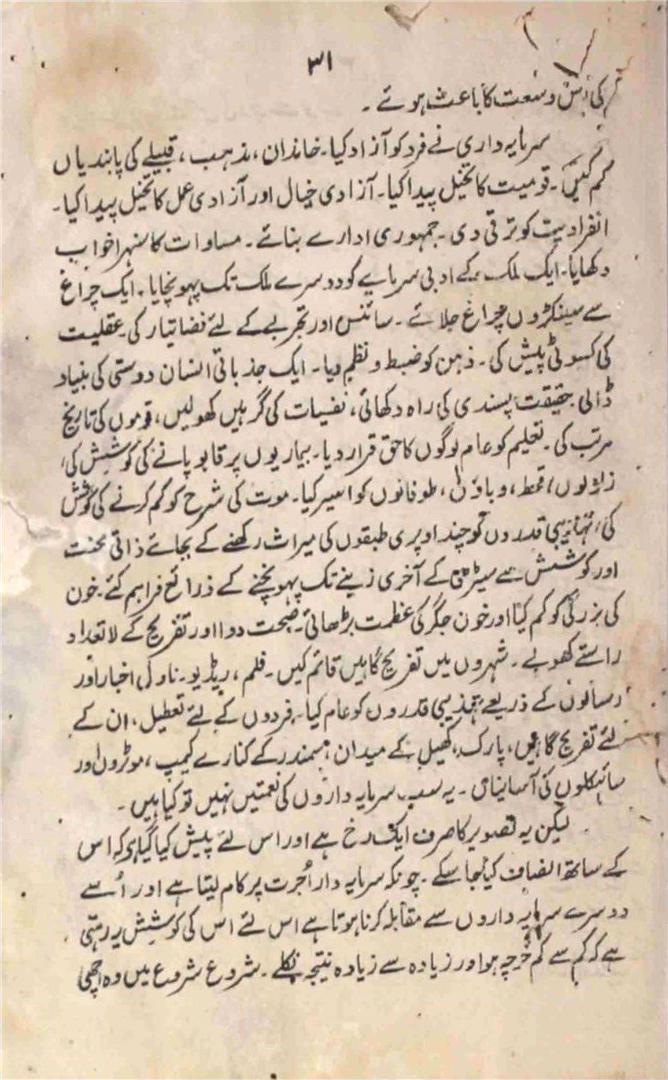 ۳۱
کی اس وسعت کا باعث ہوئے ۔
سرمایہ داری نے فرد کو آزاد کیا۔ خاندان، مذہب، قبیلے کی پابندیاں
کم کیں۔ قومیت کا تخیل پیدا کیا۔ آزادی خیال اور آزادی عمل کا تخیل پیدا کیا۔
انفرادیت کو ترقی دی۔ جمہوری ادارے بنائے۔ مساوات کا سنہرا خواب
دکھایا۔ ایک ملک کے ادبی سرمایے کو دوسرے ملک تک پہونچایا۔ ایک چراغ
سے سینکڑوں چراغ جلائے۔ سائنس اور تجربے کے لئے فضا تیار کی۔ عقلیت
کی کسوٹی پیش کی۔ ذہن کو ضبط و نظم دیا۔ ایک جذباتی انسان دوستی کی بنیاد
ڈالی۔ حقیقت پسندی کی راہ دکھائی، نفسیات کی گرہیں کھولیں، قوموں کی تاریخ
مرتب کی۔ تعلیم کو عام لوگوں کا حق قرار دیا۔ بیماریوں پر قابو پانے کی کوشش کی،
زلزلوں، قحط، وباؤں، طوفانوں کو اسیر کیا۔ موت کی شرح کو کم کرنے کی کوشش
کی، تہذیبی قدروں کو چند اوپری طبقوں کی میراث رکھنے کے بجائے ذاتی محنت
اور کوشش سے سیڑھی کے آخری زینے تک پہونچنے کے ذرائع فراہم کئے۔ خون
کی بزرگی کو کم کیا اور خون جگر کی عظمت بڑھائی۔ صحت دوا اور تفریح کے لاتعداد
راستے کھولے۔ شہروں میں تفریح گاہیں قائم کیں۔ فلم، ریڈیو۔ ناول، اخبار اور
رسالوں کے ذریعے تہذیبی قدروں کو عام کیا۔ فردوں کے لئے تعطیل، ان کے
لئے تفریح گاہیں، پارک، کھیل کے میدان، سمندر کے کنارے کیمپ، موٹروں اور
سائیکلوں کی آسانیاں۔ یہ سب سرمایہ داروں کی نعمتیں نہیں تو کیا ہیں۔
لیکن یہ تصویر کا صرف ایک رخ ہے اور اس لئے پیش کیا گیا ہے کہ اس
کے ساتھ انصاف کیا جا سکے۔ چونکہ سرمایہ دار اُجرت پر کام لیتا ہے اور اُسے
دوسرے سرمایہ داروں سے مقابلہ کرنا ہوتا ہے اس لئے اس کی کوشش یہ رہتی
ہے کہ کم سے کم خرچہ ہو اور زیادہ سے زیادہ نتیجہ نکلے۔ شروع شروع میں وہ اچھی